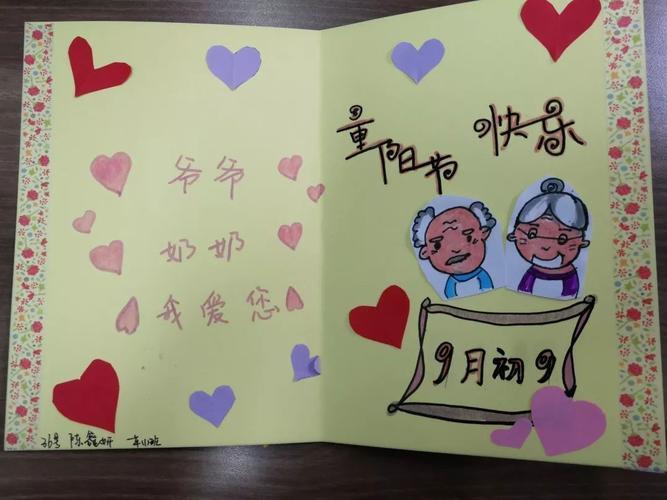 爷爷
奶奶
我爱您
36号 陈鑫妍 一年(1)班
重阳节 快乐
9月初9